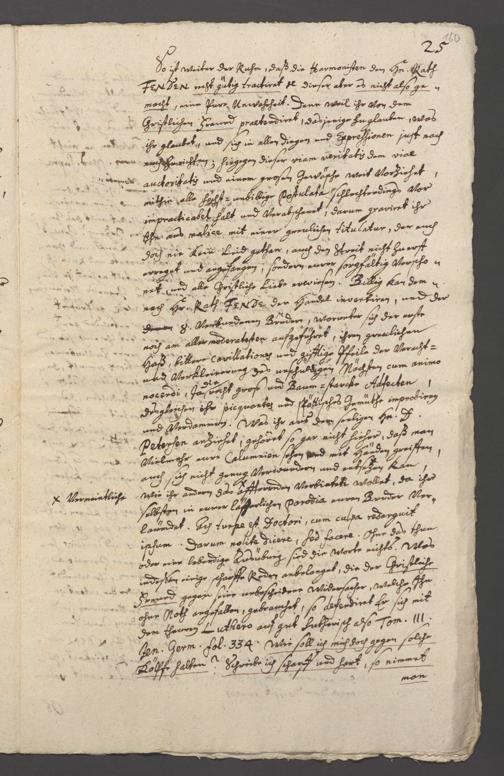 160
25
So ist weiter der Ruhm, daß die Harmonisten den Hn. Rath
FENDEN recht gütig tractiret, dieser aber es nicht also ge-
macht, eine Pure Unwahrheit. Denn weil ihr von dem
Christlichen Freund praetendiret, dasjenige zu glauben, was
ihr glaubet, und sich in allen Dingen und Expressionen just nach
hingegen dieser viam veritatis dem viae
autoritatis und einem großen weit Vorziehet,
mithin alle höchst-unbillige Postulata schlechterdings Vor
impracticabel halt und Verabscheuet, darum graviret ihr
Ihn aus malice mit einer greulichen titulatur, der euch
doch nie kein Leid gethan, auch den Streit nicht zuerst
erreget und angefangen, sondern euer sorgfältig Verscho-
net, und alle Christliche Liebe erwiesen. Billig kan dem-
nach Hr. Rath FENDE der Handel invertiren, und der
8. Verbundenen Brüder, worunter sich der erste
noch am allermoderatesten aufgeführet, ihren greulichen
Haß, bittere Cavillationes und giftige Pfeile der Veracht-
und Verkleinerung des unschuldigen Nächsten cum animo
nocendi, die ja recht groß und Baum-starcke Affecten
ihr picquantes und Gemüthe improbiren
und Verdammen. Was ihr aus dem seeligen Hn. D.
Petersen anziehet, gehöret so gar nicht hieher, daß man
Vielmehr eure Calumnien sehen und mit Händen greiffen,
auch sich nicht genug Verwundern und entsetzen kan,
wie ihr andern das Lästern Verbieten wollet, da ihr
selbsten in eurer lästerlichen Parodia euren Bruder Ver-
läumdet. Turpe est Doctori, cum culpa redarguit
ipsum. Darum nolite dicere, sed facere. Ohne das Thun
oder eine lebendige Ausübung sind die Worte nichts. Was
indessen einige scharffe Reden anbelanget, die der Christliche
Freund gegen seine unbescheidene Widersacher, welche Ihn
ohne Noth angefallen, gebrauchet, so defendiret Er sich mit
dem theuren Luthero auf gut Lutherisch also Tom. III.
Jen. Germ. fol. 334. Wie soll ich mich doch gegen solche
Köpffe halten? Schreibe ich scharff und hart, so nimmet
man
x Vermeintliche